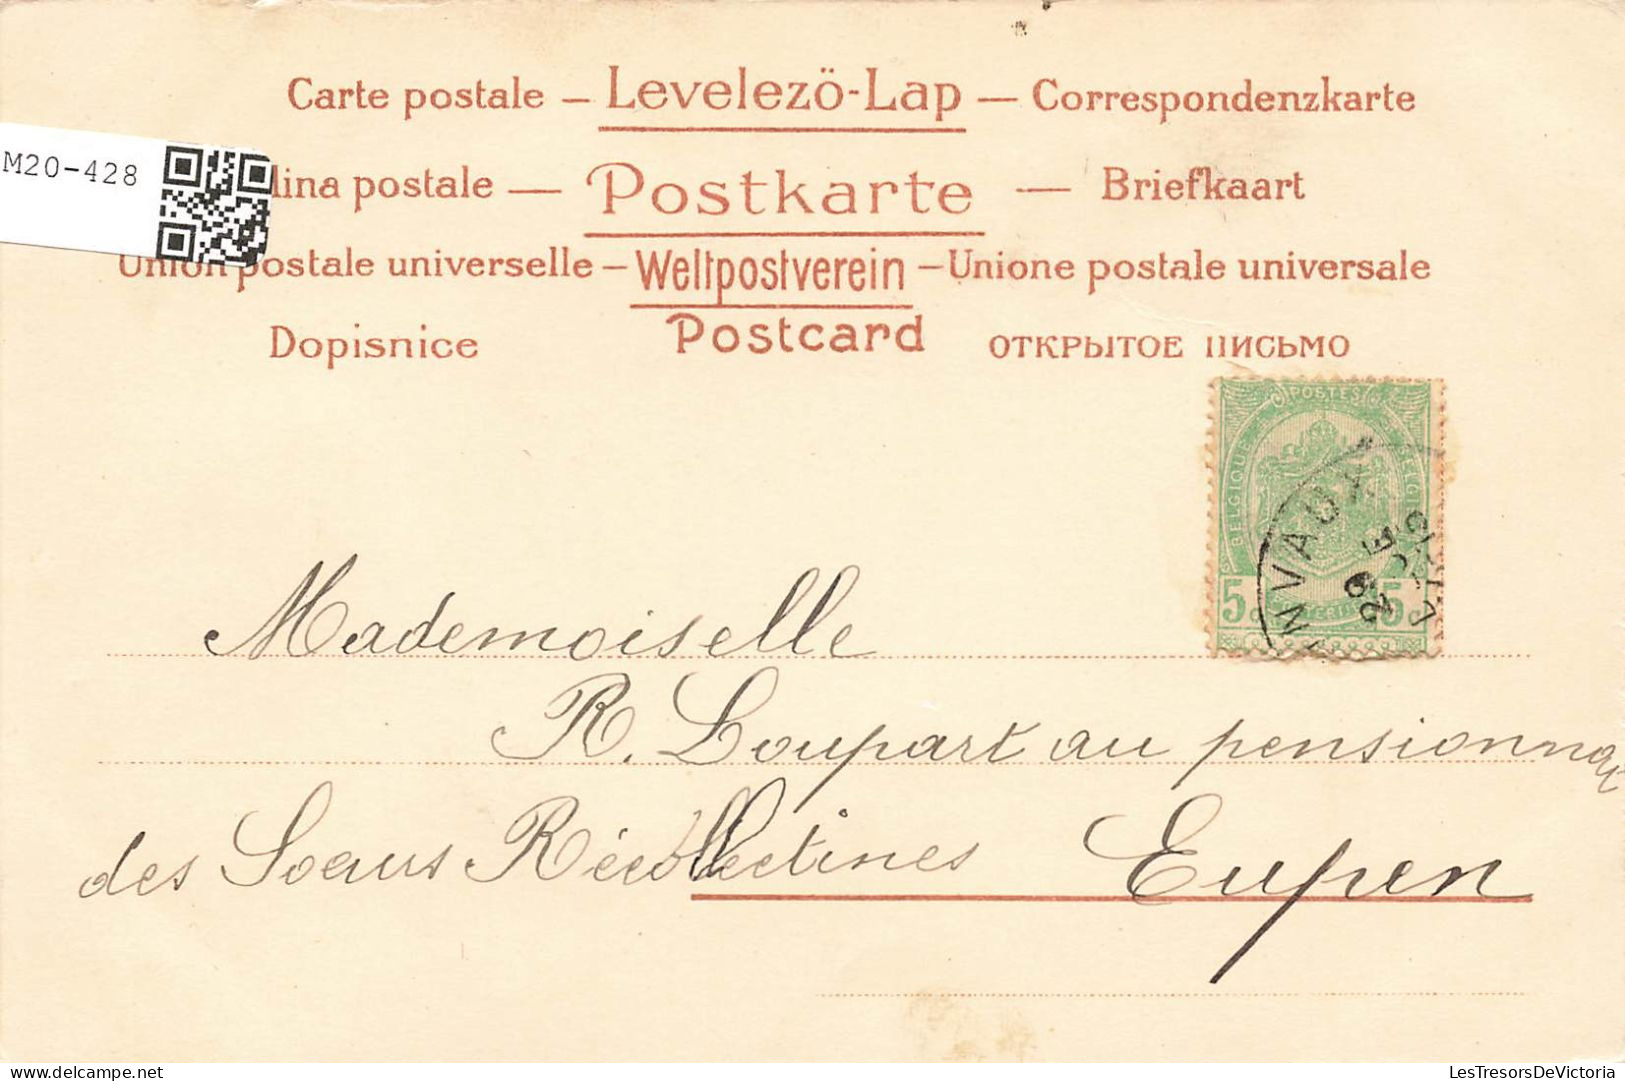 Carte postale – Levelezö-Lap – Correspondenzkarte
M20-428
lina postale — Postkarte — Briefkaart
Union postale universelle – Weltpostverein – Unione postale universale
Dopisnice Postcard ОТКРЫТОЕ ПИСЬМО
POSTES
BELGIQUE BELGIË
5c 5c
MVAUX
29
Mademoiselle
R. Loupart au pensionnat
des Soeurs Récollectines Eupen
delcampe.net
LesTresorsDeVictoria